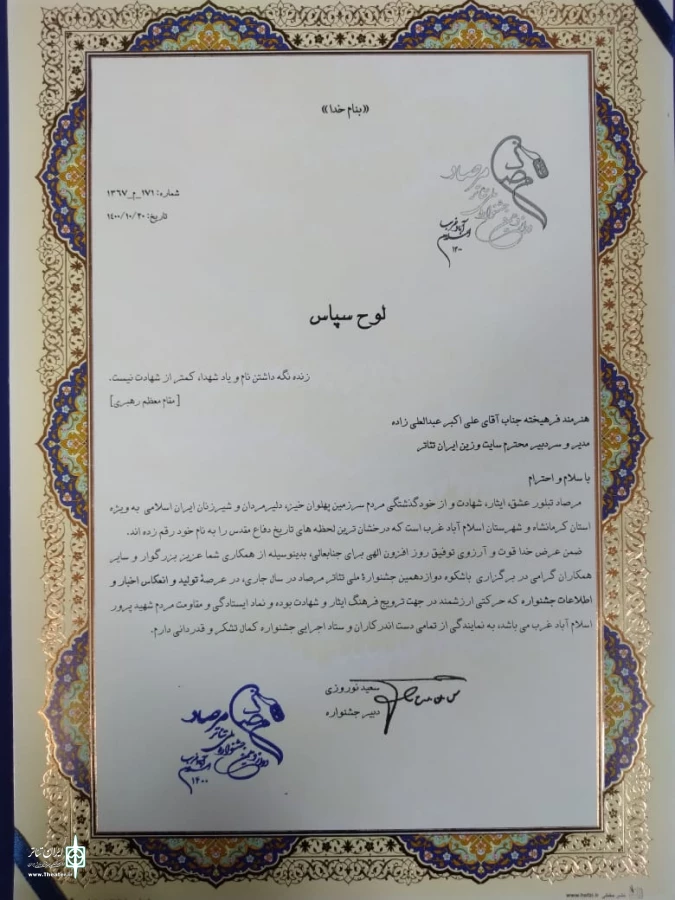 «بنام خدا»
مرصاد
دوازدهمین جشنواره ملی تئاتر
اسلام آباد غرب
۱۴۰۰
شماره: ۱۷۱_م_۱۳۶۷
تاریخ: ۱۴۰۰/۱۰/۲۰
لوح سپاس
زنده نگه داشتن نام و یاد شهدا، کمتر از شهادت نیست.
[مقام معظم رهبری]
هنرمند فرهیخته جناب آقای علی اکبر عبدالعلی زاده
مدیر و سردبیر محترم سایت وزین ایران تئاتر
با سلام و احترام
مرصاد تبلور عشق، ایثار، شهادت و از خودگذشتگی مردم سرزمین پهلوان خیز، دلیرمردان و شیرزنان ایران اسلامی به ویژه
استان کرمانشاه و شهرستان اسلام آباد غرب است که درخشان ترین لحظه های تاریخ دفاع مقدس را به نام خود رقم زده اند.
ضمن عرض خدا قوت و آرزوی توفیق روز افزون الهی برای جنابعالی، بدینوسیله از همکاری شما عزیز بزرگوار و سایر
همکاران گرامی در برگزاری باشکوه دوازدهمین جشنوارهٔ ملی تئاتر مرصاد در سال جاری، در عرصهٔ تولید و انعکاس اخبار و
اطلاعات جشنواره که حرکتی ارزشمند در جهت ترویج فرهنگ ایثار و شهادت بوده و نماد ایستادگی و مقاومت مردم شهید پرور
اسلام آباد غرب می باشد، به نمایندگی از تمامی دست اندرکاران و ستاد اجرایی جشنواره کمال تشکر و قدردانی دارم.
سعید نوروزی
دبیر جشنواره
مرصاد
دوازدهمین جشنواره ملی تئاتر
اسلام آباد غرب
۱۴۰۰
ایران تئاتر
www.Theater.ir